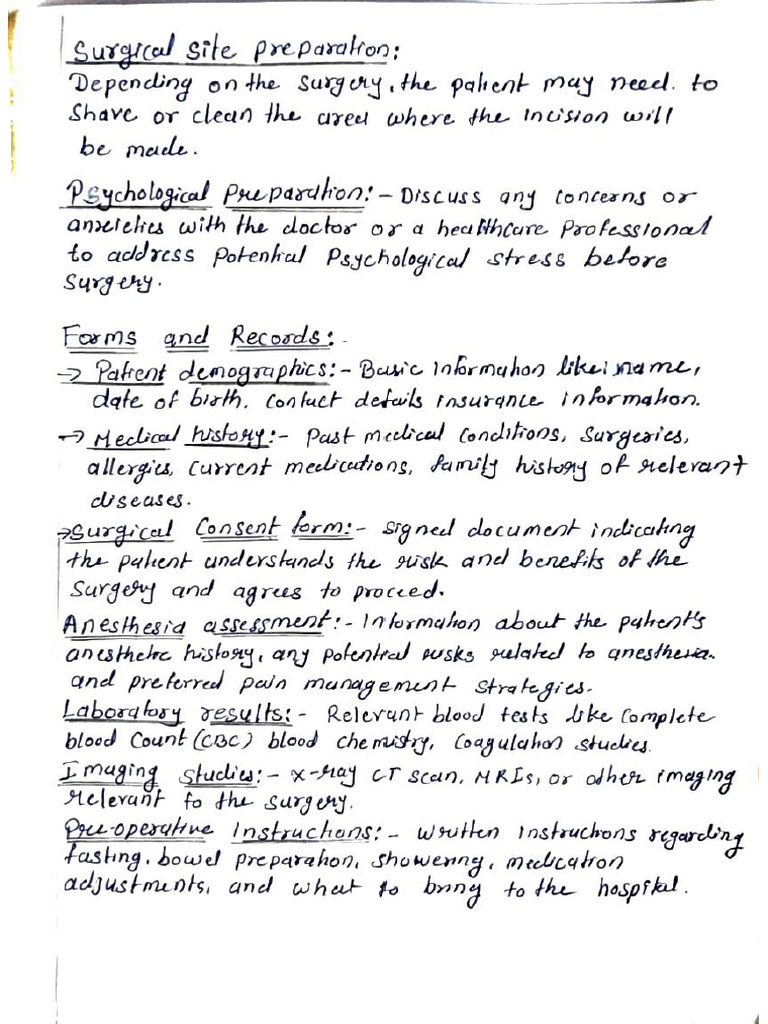 Surgical site preparation:
Depending on the surgery, the patient may need. to
Shave or clean the area where the incision will
be made.
Psychological Preparation:- Discuss any concerns or
anxieties with the doctor or a healthcare Professional
to address Potential Psychological stress before
Surgery.
Forms and Records:-
→ Patient demographics:- Basic information like: name,
date of birth, contact details insurance information.
→ Medical history:- Past medical conditions, surgeries,
allergies, current medications, family history of relevant
diseases.
→ Surgical Consent form:- signed document indicating
the patient understands the risk and benefits of the
Surgery and agrees to proceed.
Anesthesia assessment:- Information about the patient's
anesthetic history, any potential risks related to anesthesia.
and preferred pain management strategies.
Laboratory results:- Relevant blood tests like complete
blood Count (CBC) blood chemistry, Coagulation studies.
Imaging studies:- X-ray CT scan, MRIs, or other imaging
relevant to the surgery.
Pre-operative Instructions:- Written instructions regarding
fasting, bowel preparation, showering, medication
adjustments, and what to bring to the hospital.